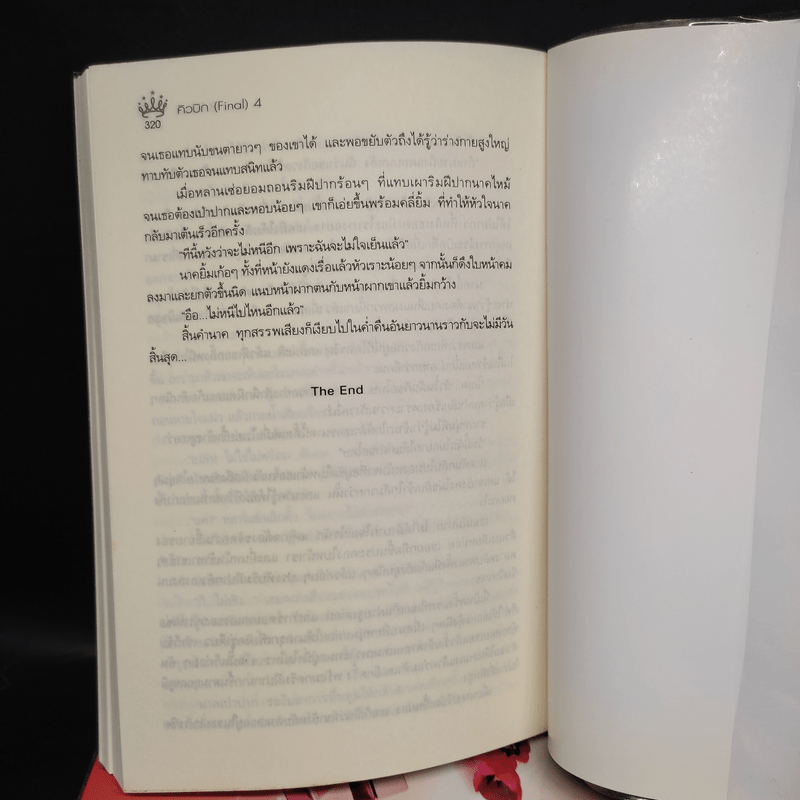 คิวบิก (Final) 4
320
จนเธอแทบนับขนตายาวๆ ของเขาได้ และพอขยับตัวถึงได้รู้ว่าร่างกายสูงใหญ่
ทาบทับตัวเธอจนแทบสนิทแล้ว
เมื่อหลานเซ่อยอมถอนริมฝีปากร้อนๆ ที่แทบเผาริมฝีปากนาคไหม้
จนเธอต้องเป่าปากและหอบน้อยๆ เขาก็เอ่ยขึ้นพร้อมคลี่ยิ้ม ที่ทำให้หัวใจนาค
กลับมาเต้นเร็วอีกครั้ง
“ทีนี้หวังว่าจะไม่หนีอีก เพราะฉันจะไม่ใจเย็นแล้ว”
นาคยิ้มเก้อๆ ทั้งที่หน้ายังแดงเรื่อแล้วหัวเราะน้อยๆ จากนั้นก็ดึงใบหน้าคม
ลงมาและยกตัวขึ้นนิด แนบหน้าผากตนกับหน้าผากเขาแล้วยิ้มกว้าง
“อือ...ไม่หนีไปไหนอีกแล้ว”
สิ้นคำนาค ทุกสรรพเสียงก็เงียบไปในค่ำคืนอันยาวนานราวกับจะไม่มีวัน
สิ้นสุด...
The End